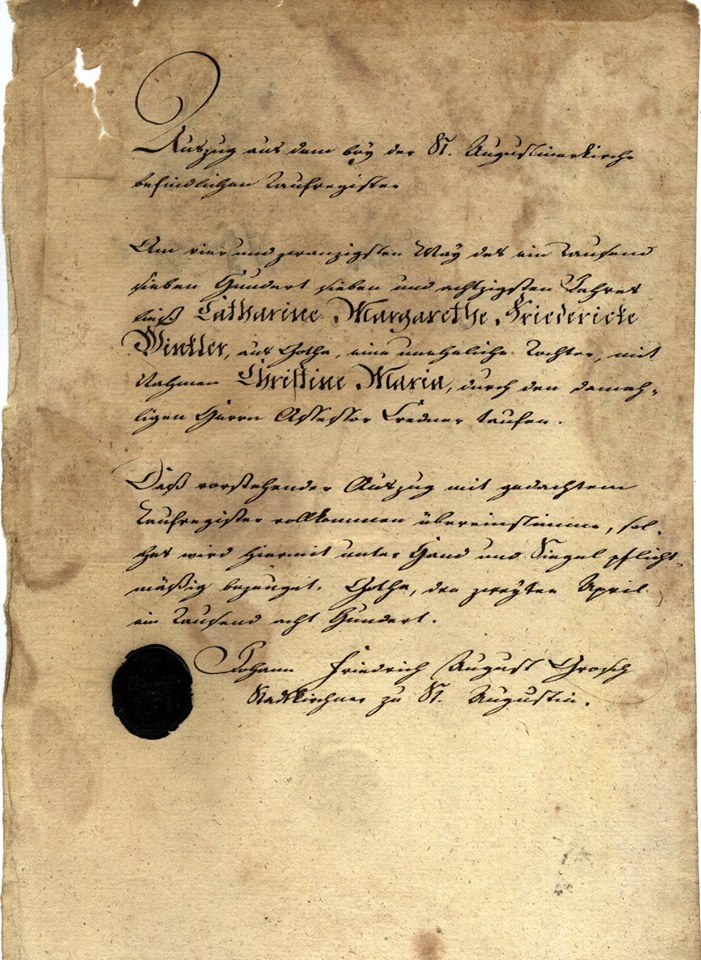 Auszug aus dem bey der St. Augustinerkirche
befindlichen Taufregister
Am vier und zwanzigsten May des ein Tausend
sieben Hundert sieben und achtzigsten Jahres
ließ Catharine Margarethe Friedericke
Winkler, aus Gotha, eine uneheliche Tochter, mit
Nahmen Christine Maria, durch den damah-
ligen Herrn Assessor Credner taufen.
Daß vorstehender Auszug mit gedachtem
Taufregister vollkommen übereinstimme, sol-
ches wird hiermit unter Hand und Siegel pflicht-
mäßig bezeuget. Gotha, den zweyten April
ein Tausend acht Hundert.
Johann Friedrich August Grosch
Stadtkirchner zu St. Augustin.